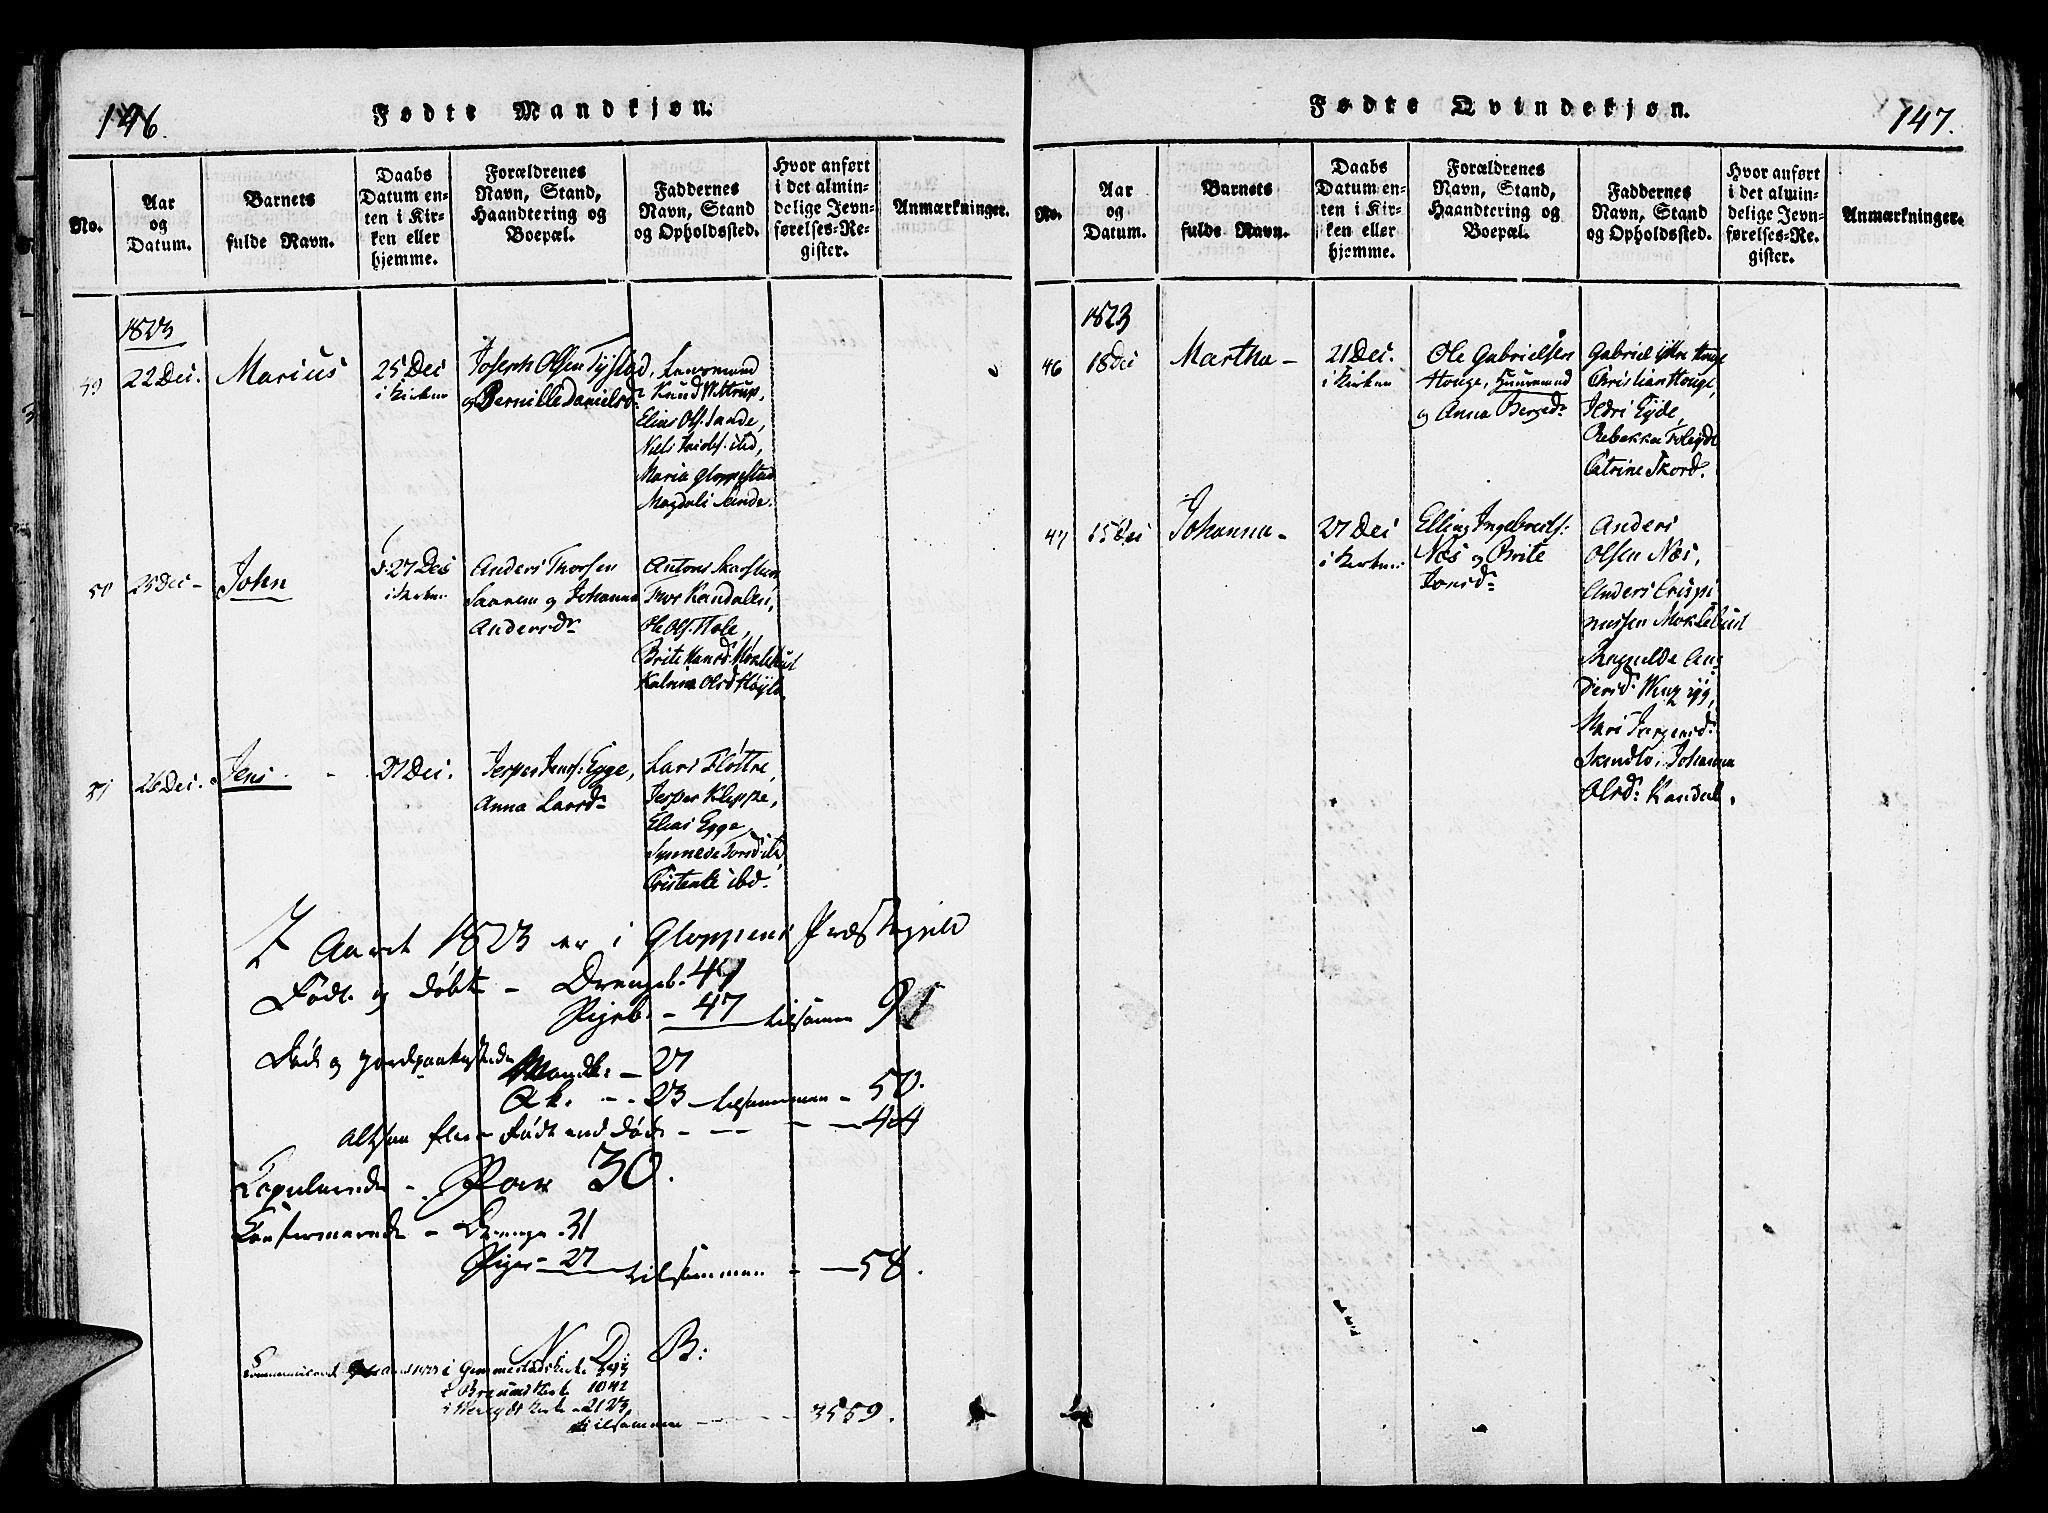 146.
Fødte Mandkjøn.
No.
Aar og Datum.
Barnets fulde Navn.
Daabs Datum enten i Kirken eller hjemme.
Forældrenes Navn, Stand, Haandtering og Boepæl.
Faddernes Navn, Stand og Opholdssted.
Hvor anført i det almindelige Jevnførelses-Register.
Anmærkninger.
1823
49
22 Dec.
Marius
25 Dec
i Kirken
Joseph Olsen Tystad,
og Pernille Danielsdr
Lensmand
Knud Wittrup,
Elias Ols. Sande,
Niels
Maria Gloppestad
Magdali Sande.
50
25 Dec -
John
d. 27 Dec
i Kirken
Anders Thorsen
og Johanna
Andersdr
Antoni
Kandalen,
Ole Ols. Hole,
Brite Hansd. Moklebust
Olsd
51
26 Dec.
Jens -
27 Dec.
Jesper Jens: Egge,
Anna Larsdr
Lars Fløtre,
Jesper Kleppe,
Elias Egge,
Synneve
ibd.
I Aaret 1823 er i Gloppens Præstegield
Født og døbt - Drengeb. 47
Pigeb. - 47 tilsamen 91
Død og jordpaakastede
Mandk: - 27
Qk. - - 23 tilsamman - 50.
Altsaa flere Født end død - - - 44
Copulerede - Par 30.
Confirmerede - Drenge - 31
Piger - 27 tilsamman - 58.
N. D. B:
i Gimmestadskirke
i Breumskirk 1042
i Kirke - 2123
tilsammen - 3559.
147.
Fødte Qvindekjøn.
No.
Aar og Datum.
Barnets fulde Navn.
Daabs Datum enten i Kirken eller hjemme.
Forældrenes Navn, Stand, Haandtering og Boepæl.
Faddernes Navn, Stand og Opholdssted.
Hvor anført i det almindelige Jevnførelses-Register.
Anmærkninger.
1823
46
18 Dec
Martha -
21 Dec.
i Kirken
Ole Gabrielsen
Houge, Huusmand
og Anna Bergedr
Gabriel Houge
Christian Houge,
Eyde,
Rebekka
Catrine Skordr.
47
15 Dec
Johanna -
27 Dec
i Kirken
Elling Ingebretls:
Næs og Brite
Jonsdr
Anders
Olsen Næs,
Anders Crispi
nussen Moklebust
Ragnilde An
dersd.
Mari Jørgensd.
Johanna
Olsdr Kandal.